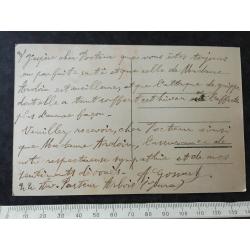 J'espère cher Docteur que vous êtes toujours
en parfaite santé et que celle de Madame
Ardoin est meilleure, et que l'attaque de grippe
dont elle a tant souffert cet hiver ne l'affecte
plus d'aucune façon.
Veuillez recevoir, cher Docteur ainsi
que Madame Ardoin, l'assurance de
notre respectueuse sympathie et de mes
sentiments dévoués.
Pasteur Arbois (Jura)